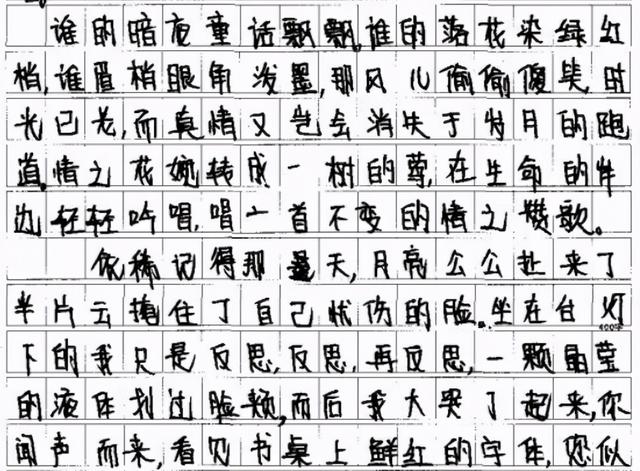 谁的暗夜童话飘飘。谁的落花染绿红
梢,谁眉梢眼角泼墨,那风儿偷偷傻笑,时
光已老,而真情又岂会消失于岁月的跑
道。情之花婉转成一树的萼,在生命的伴
边轻轻吟唱,唱一首不变的情之赞歌。
依稀记得那是天,月亮公公扯来了
半片云掩住了自己忧伤的脸。坐在台灯
400字
下的我只是反思,反思,再反思,一颗晶莹
的液体划过脸颊,而后我大哭了起来,你
闻声而来,看见书桌上鲜红的字体,您似